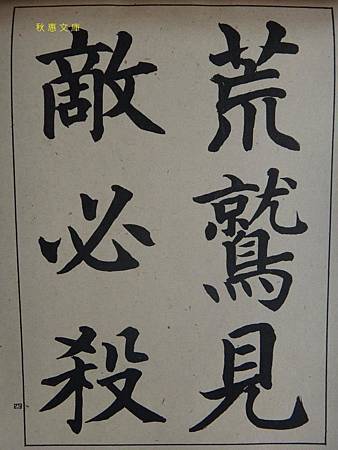 秋惠文庫
荒鷲見
敵必殺
四